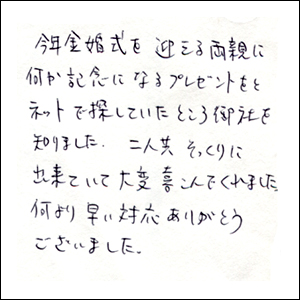 今年金婚式を 迎える両親に
何か記念に なるプレゼントをと
ネットで探していたところ御社を
知りました. 二人共 そっくりに
出来ていて 大変 喜こんでくれました
何より 早い対応 ありがとう
ございました.